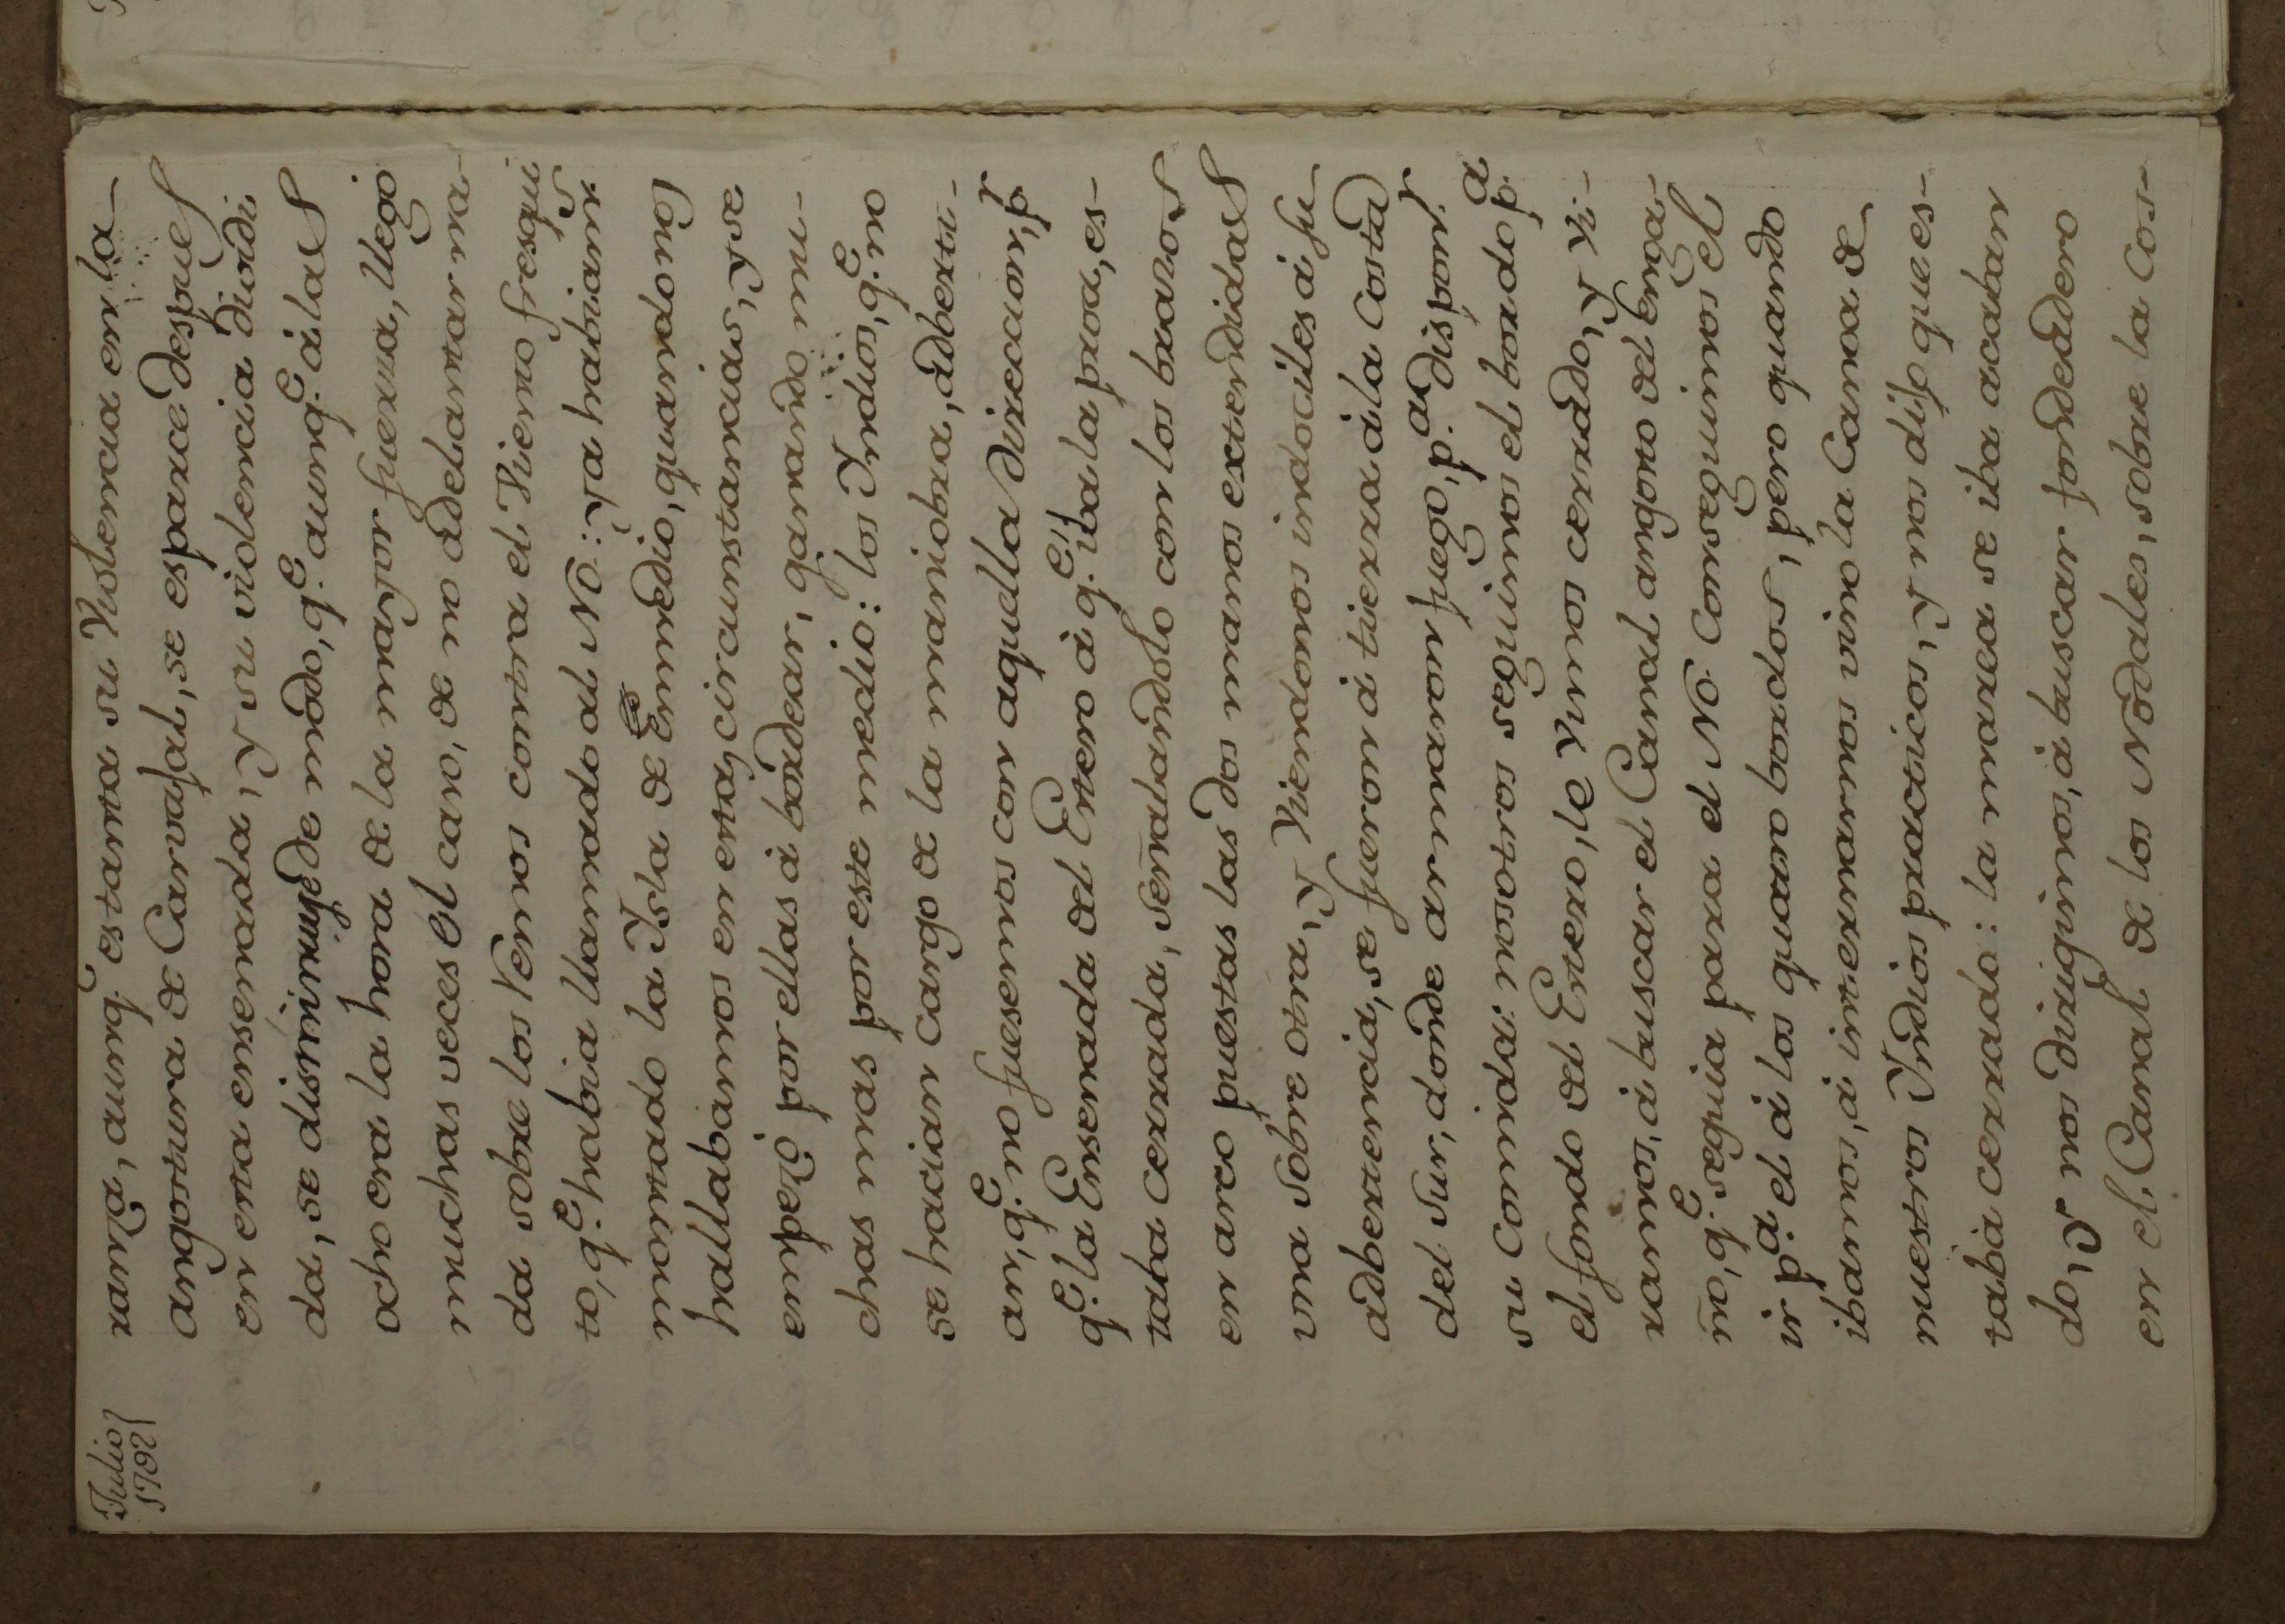 Julio
1792
ranza, aunq.e estanta su Violencia en la
angostura de Carvajal, se esparce despues
en esta ensenada, y su violencia dividi
da, se disminuye de modo, q.e aunq.e á las
ocho era la hora de la mayor fuerza, llegó
muchas veces el caso, de no adelantar na-
da sobre los Remos contra el Viento fresqui
to, q.e habia llamado al NO: ya habiam.s
montado la Ysla de Enmedio, quando nos
hallabamos en estas circunstancias, y se
empezó por ellas á bordear, ganando mu-
chas mas por este medio: los Yndios, q.e no
se hacian cargo de la maniobra, advertí-
an, q.e no fuesemos con aquella direccion, p.r
q.e la Ensenada del Estero á q.e iba la proa, es-
taba cerrada, señalandolo con los brazos
en arco puestas las dos manos extendidas
una sobre otra, y Viendonos indociles á su
advertencia, se fueron á tierra á la Costa
del Sur, donde armaron fuego, p.a dispon.r
su comida: nosotros seguimos el bordo p.a
el fondo del Estero, le vimos cerrado, y vi-
ramos, á buscar el Canal angosto del enga-
ño, q.e seguia para el NO. Conseguimos el
ir p.a el á los quatro bordos, pero quando
ibamos, á internarnos vino la Canoa de
nuestros Yndios practicos, y nos dijo que es-
taba cerrado: la marea se iba acaban
do, y nos dirigimos, á buscar fondeadero
en el Canal de los Nodales, sobre la Cos-